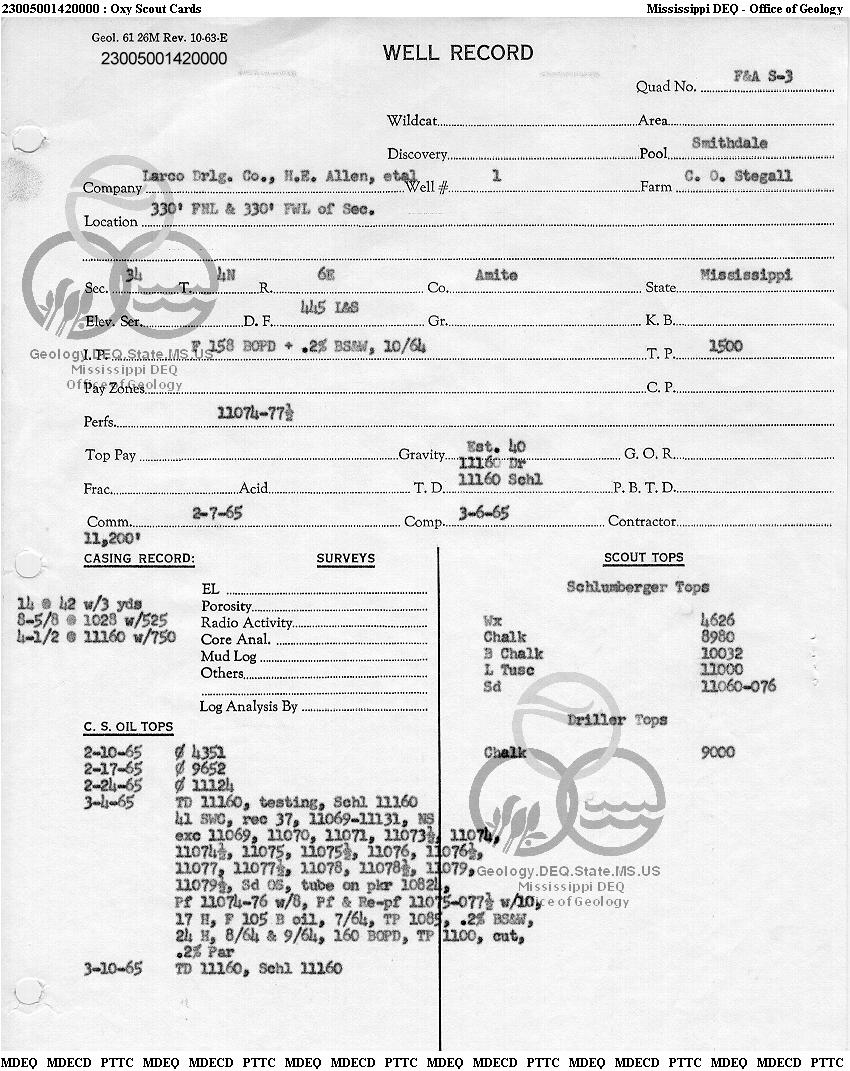 23005001420000 : Oxy Scout Cards Mississippi DEQ - Office of Geology
Geol. 61 26M Rev. 10-63-E
23005001420000
WELL RECORD
Quad No. F&A S-3
Wildcat Area
Discovery Pool Smithdale
Company Larco Drlg. Co., H.E. Allen, etal Well # 1 Farm C. O. Stegall
Location 330' FNL & 330' FWL of Sec.
Sec. 34 T. 4N R. 6E Co. Amite State Mississippi
Elev. Ser. D. F. 445 I&S Gr. K. B.
I. P. F 158 BOPD + .2% BS&W, 10/64 T. P. 1500
Geology.DEQ.State.MS.US
Mississippi DEQ
Office of Geology
Pay Zones C. P.
Perfs. 11074-77½
Top Pay Gravity Est. 40 G. O. R.
11160 Dr
Frac. Acid T. D. 11160 Schl P. B. T. D.
Comm. 2-7-65 Comp. 3-6-65 Contractor
11,200'
CASING RECORD: SURVEYS
14 @ 42 w/3 yds
8-5/8 @ 1028 w/525
4-1/2 @ 11160 w/750
EL
Porosity
Radio Activity
Core Anal.
Mud Log
Others
Log Analysis By
C. S. OIL TOPS
2-10-65 Ø 4351
2-17-65 Ø 9652
2-24-65 Ø 11124
3-4-65 TD 11160, testing, Schl 11160
41 SWC, rec 37, 11069-11131, NS
exc 11069, 11070, 11071, 11073½, 11074,
11074½, 11075, 11075½, 11076, 11076½,
11077, 11077½, 11078, 11078½, 11079,
11079½, Sd OS, tube on pkr 10824,
Pf 11074-76 w/8, Pf & Re-pf 11075-077½ w/10,
17 H, F 105 B oil, 7/64, TP 1085, .2% BS&W,
24 H, 8/64 & 9/64, 160 BOPD, TP 1100, cut,
.2% Par
3-10-65 TD 11160, Schl 11160
SCOUT TOPS
Schlumberger Tops
Wx 4626
Chalk 8980
B Chalk 10032
L Tusc 11000
Sd 11060-076
Driller Tops
Chalk 9000
Geology.DEQ.State.MS.US
Mississippi DEQ
Office of Geology
MDEQ MDECD PTTC MDEQ MDECD PTTC MDEQ MDECD PTTC MDEQ MDECD PTTC MDEQ MDECD PTTC MDEQ MDECD PTTC